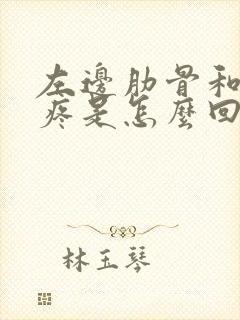 左邊肋骨和
疼是怎麼回
林玉琴